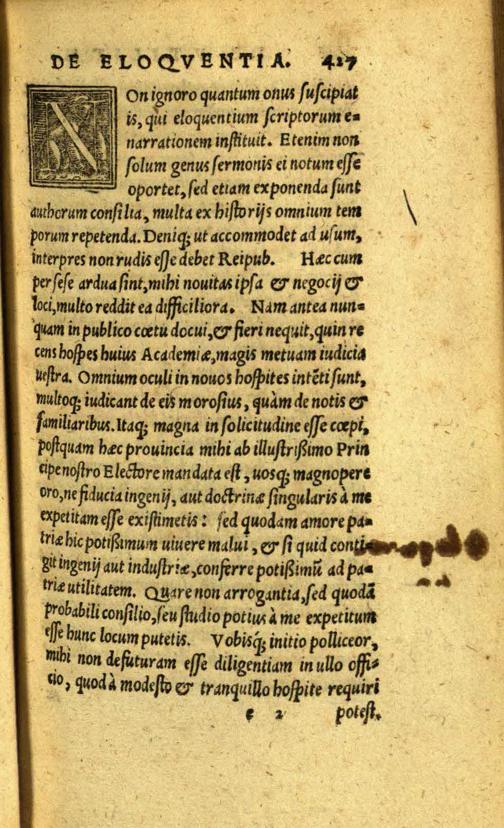 DE ELOQVENTIA. 427
NOn ignoro quantum onus suscipiat
is, qui eloquentium scriptorum e=
narrationem instituit. Etenim non
solum genus sermonis ei notum esse
oportet, sed etiam exponenda sunt
authorum consilia, multa ex historijs omnium tem
porum repetenda. Deniq; ut accommodet ad usum,
interpres non rudis esse debet Reipub. Hæc cum
per sese ardua sint, mihi nouitas ipsa & negocij &
loci, multo reddit ea difficiliora. Nam antea nun=
quam in publico cœtu docui, & fieri nequit, quin re
cens hospes huius Academiæ, magis metuam iudicia
uestra. Omnium oculi in nouos hospites intẽti sunt,
multoq; iudicant de eis morosius, quàm de notis &
familiaribus. Itaq; magna in solicitudine esse cœpi,
postquam hæc prouincia mihi ab illustrißimo Prin
cipe nostro Electore mandata est, uosq; magnopere
oro, ne fiducia ingenij, aut doctrinæ singularis à me
expetitam esse existimetis: sed quodam amore pa=
triæ hic potißimum uiuere malui, & si quid conti=
git ingenij aut industriæ, conferre potißimũ ad pa=
triæ utilitatem. Quare non arrogantia, sed quodã
probabili consilio, seu studio potius à me expetitum
esse hunc locum putetis. Vobisq; initio polliceor,
mihi non defuturam esse diligentiam in ullo offi=
cio, quod à modesto & tranquillo hospite requiri
e 2 potest.